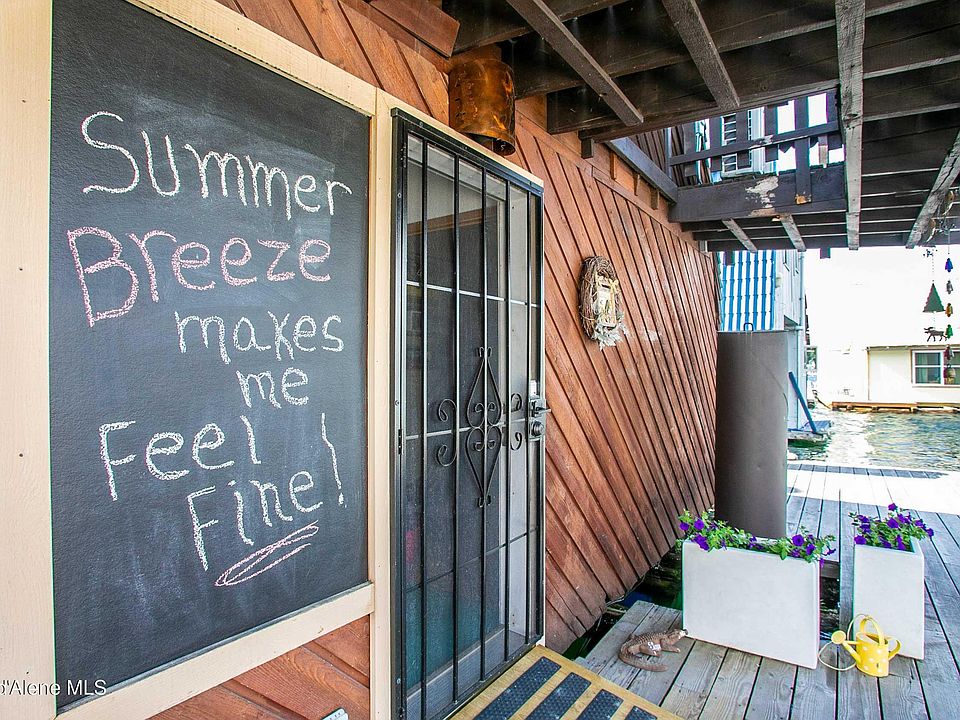 Summer
Breeze
makes
me
Feel
Fine!
d'Alene MLS